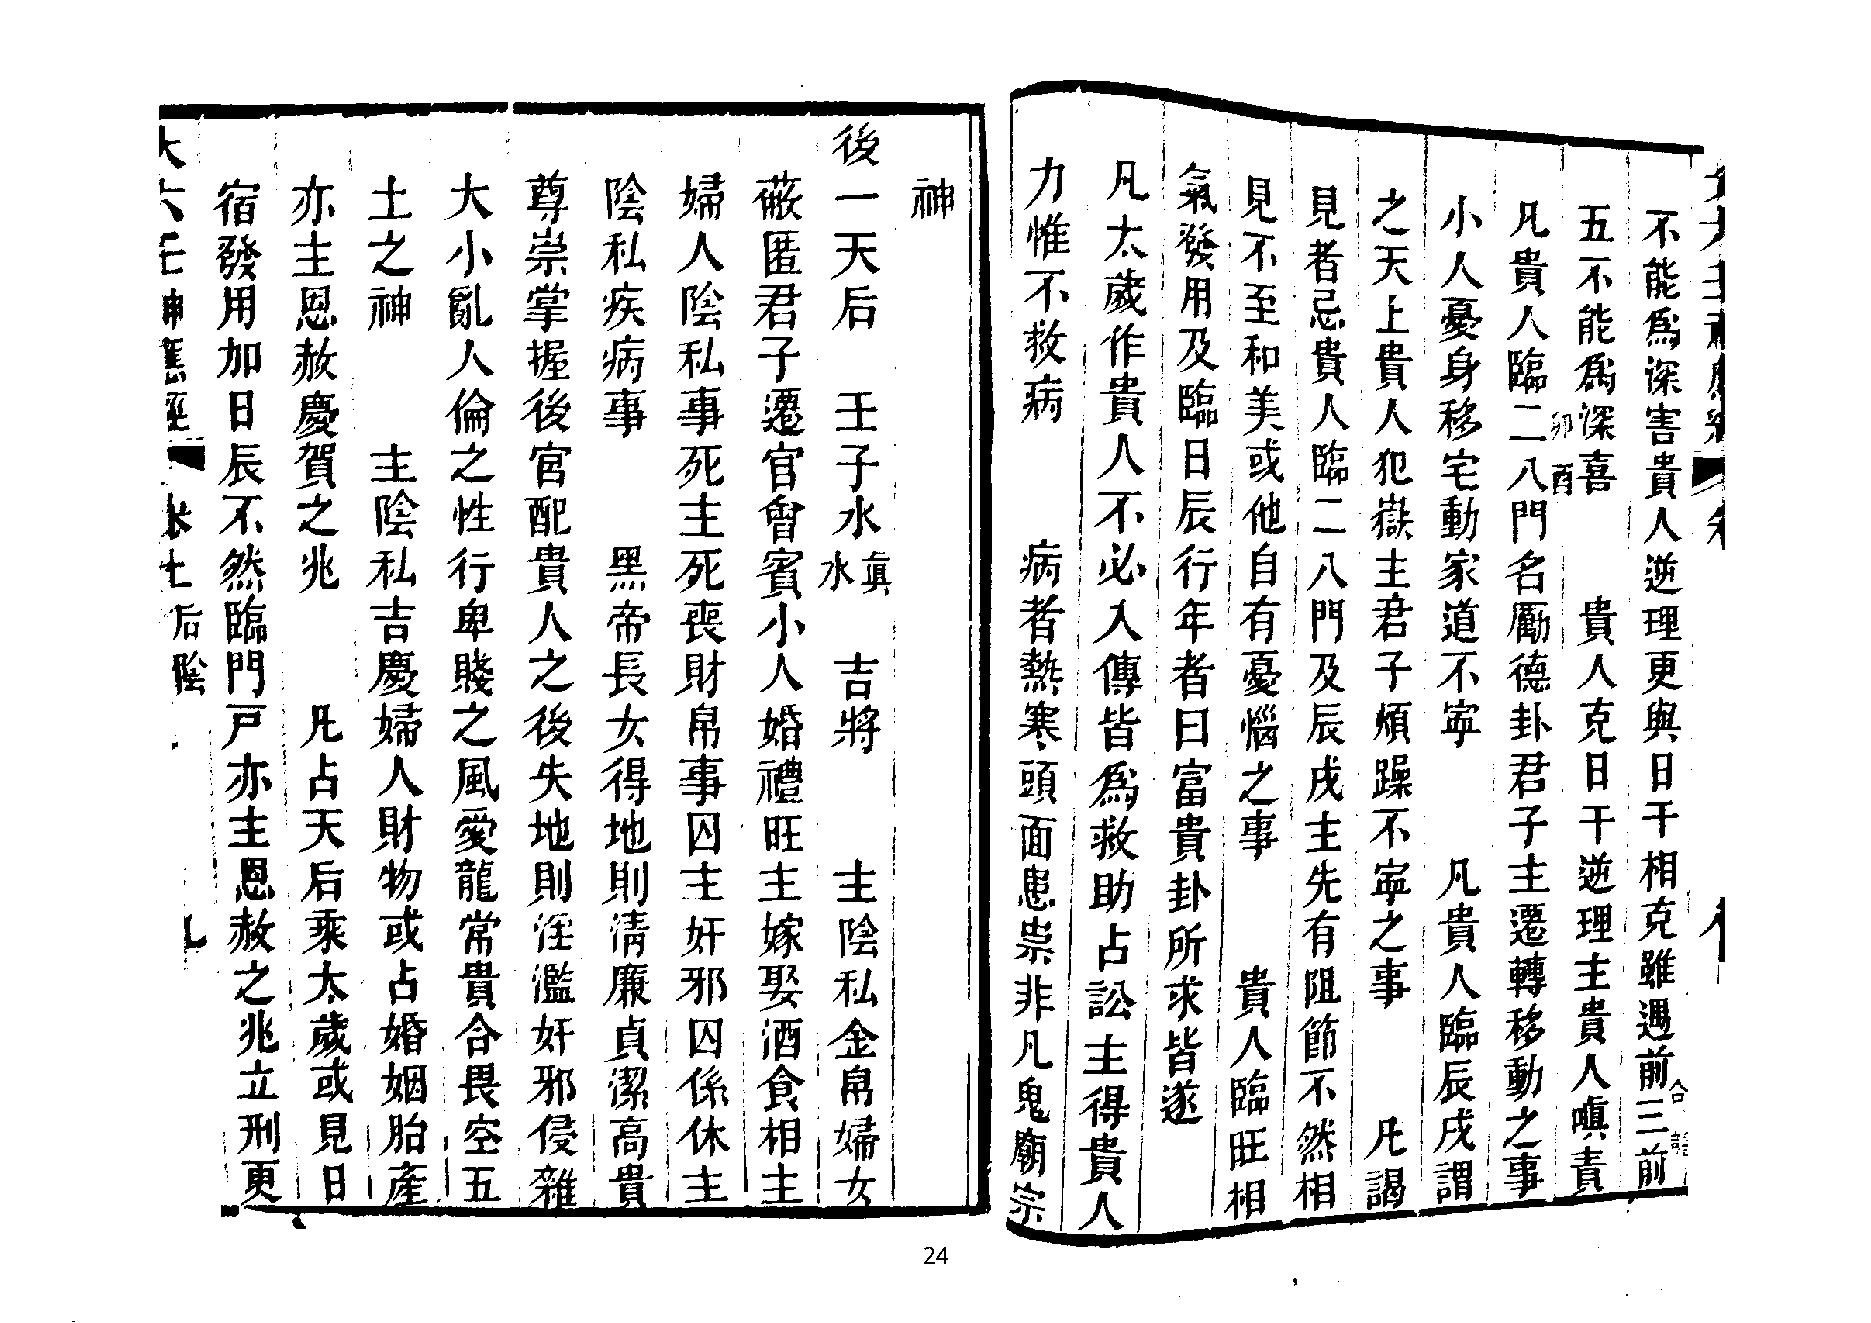 不能爲深害貴人逆理更與日干相克雖遇前三前
合
五不能爲深喜　貴人克日干逆理主貴人嗔責
卯酉
凡貴人臨二八門名勵德卦君子主遷轉移動之事
小人憂身移宅動家道不寧　凡貴人臨辰戌謂
之天上貴人犯嶽主君子煩躁不寧之事　凡謁
見者忌貴人臨二八門及辰戌主先有阻節不然相
見不至和美或他自有憂惱之事　貴人臨旺相
氣發用及臨日辰行年者曰富貴卦所求皆遂
凡太歲作貴人不必入傳皆爲救助占訟主得貴人
力惟不救病　病者熱寒頭面患祟非凡鬼廟宗
神
後一天后　壬子水眞水　吉將　主陰私金帛婦女
蔽匿君子遷官會賓小人婚禮旺主嫁娶酒食相主
婦人陰私事死主死喪財帛事囚主奸邪囚係休主
陰私疾病事　黑帝長女得地則清廉貞潔高貴
尊崇掌握後宮配貴人之後失地則淫濫奸邪侵雜
大小亂人倫之性行卑賤之風愛龍常貴合畏空五
土之神　主陰私吉慶婦人財物或占婚姻胎產
亦主恩赦慶賀之兆　凡占天后乘太歲或見日
宿發用加日辰不然臨門戸亦主恩赦之兆立刑更
大六壬神應經　卷七　后陰　九
24